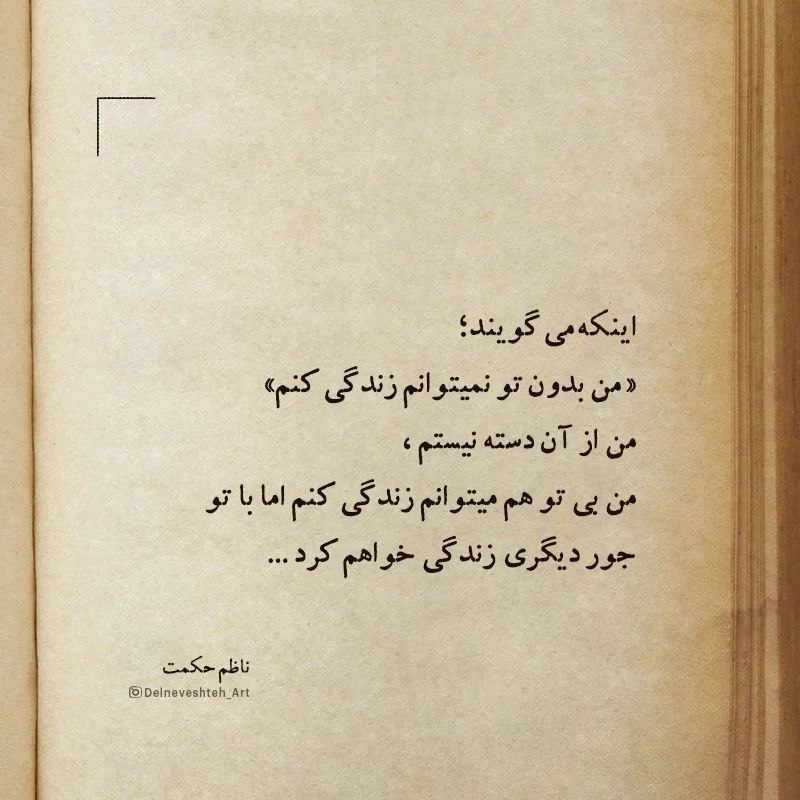 اینکه می گویند؛
«من بدون تو نمیتوانم زندگی کنم»
من از آن دسته نیستم ،
من بی تو هم میتوانم زندگی کنم اما با تو
جور دیگری زندگی خواهم کرد ...
ناظم حکمت
Delneveshteh_Art